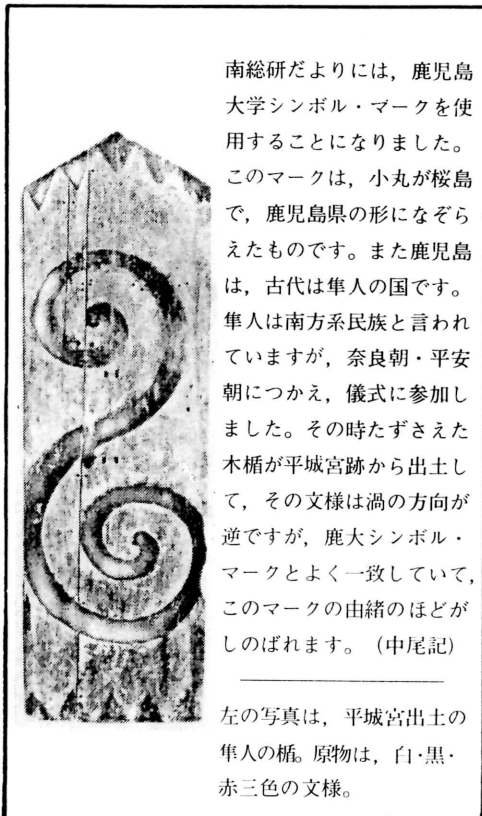 南総研だよりには，鹿児島
大学シンボル・マークを使
用することになりました。
このマークは，小丸が桜島
で，鹿児島県の形になぞら
えたものです。また鹿児島
は，古代は隼人の国です。
隼人は南方系民族と言われ
ていますが，奈良朝・平安
朝につかえ，儀式に参加し
ました。その時たずさえた
木楯が平城宮跡から出土し
て，その文様は渦の方向が
逆ですが，鹿大シンボル・
マークとよく一致していて，
このマークの由緒のほどが
しのばれます。（中尾記）
左の写真は，平城宮出土の
隼人の楯。原物は，白・黒・
赤三色の文様。